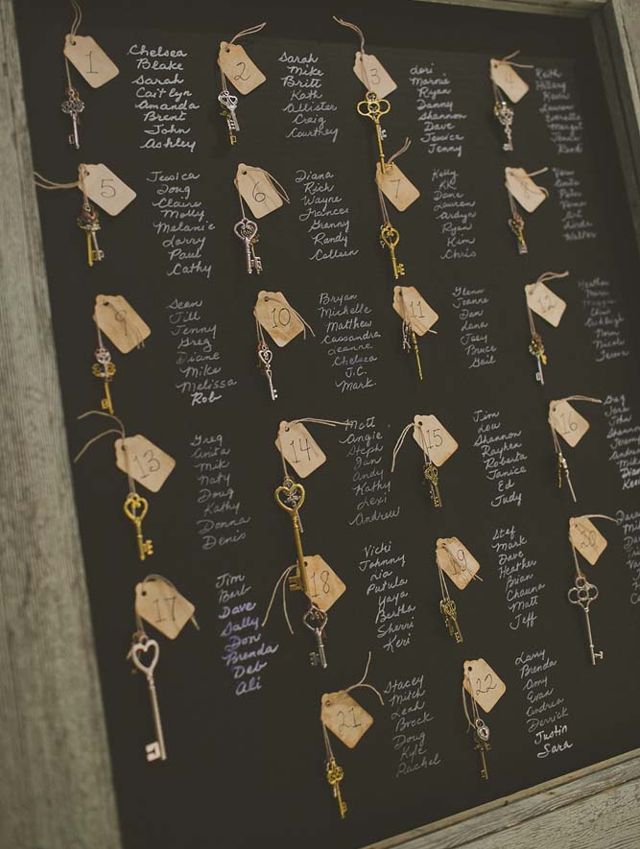 1
Chelsea
Blake
Sarah
Caitlyn
Amanda
Brent
John
Ashley
2
Sarah
Mike
Britt
Kath
Allister
Craig
Courtney
3
Lori
Marnie
Ryan
Danny
Shannon
Dave
Jessica
Jenny
4
Keith
Hilary
5
Jessica
Doug
Claire
Molly
Melanie
Larry
Paul
Cathy
6
Diana
Rich
Wayne
Frances
Granny
Randy
Colleen
7
Kelly
KK
Dave
Lauren
Ardyn
Ryan
Kim
Chris
8
Walter
9
Sean
Jill
Jenny
Greg
Diane
Mike
Melissa
Rob
10
Bryan
Michelle
Matthew
Cassandra
Leanne
Chelsea
J.C.
Mark
11
Glenn
Joanne
Dan
Lana
Jody
Bruce
Gail
12
Heather
Nicole
13
Greg
Anita
Mik
Naty
Doug
Kathy
Donna
Denis
14
Matt
Angie
Steph
Jan
Andy
Kathy
Lexi
Andrew
15
Jim
Lou
Shannon
Raylien
Roberta
Janice
Ed
Judy
16
17
Jim
Barb
Dave
Sally
Don
Brenda
Deb
Ali
18
Vicki
Johnny
Lia
Putula
Yaya
Bertha
Sherri
Keri
19
Stef
Mark
Dave
Heather
Brian
Chauna
Matt
Jeff
20
21
Stacey
Mitch
Leah
Brock
Doug
Kyle
Rachel
22
Larry
Brenda
Amy
Evan
Andrea
Derrick
Justin
Sara